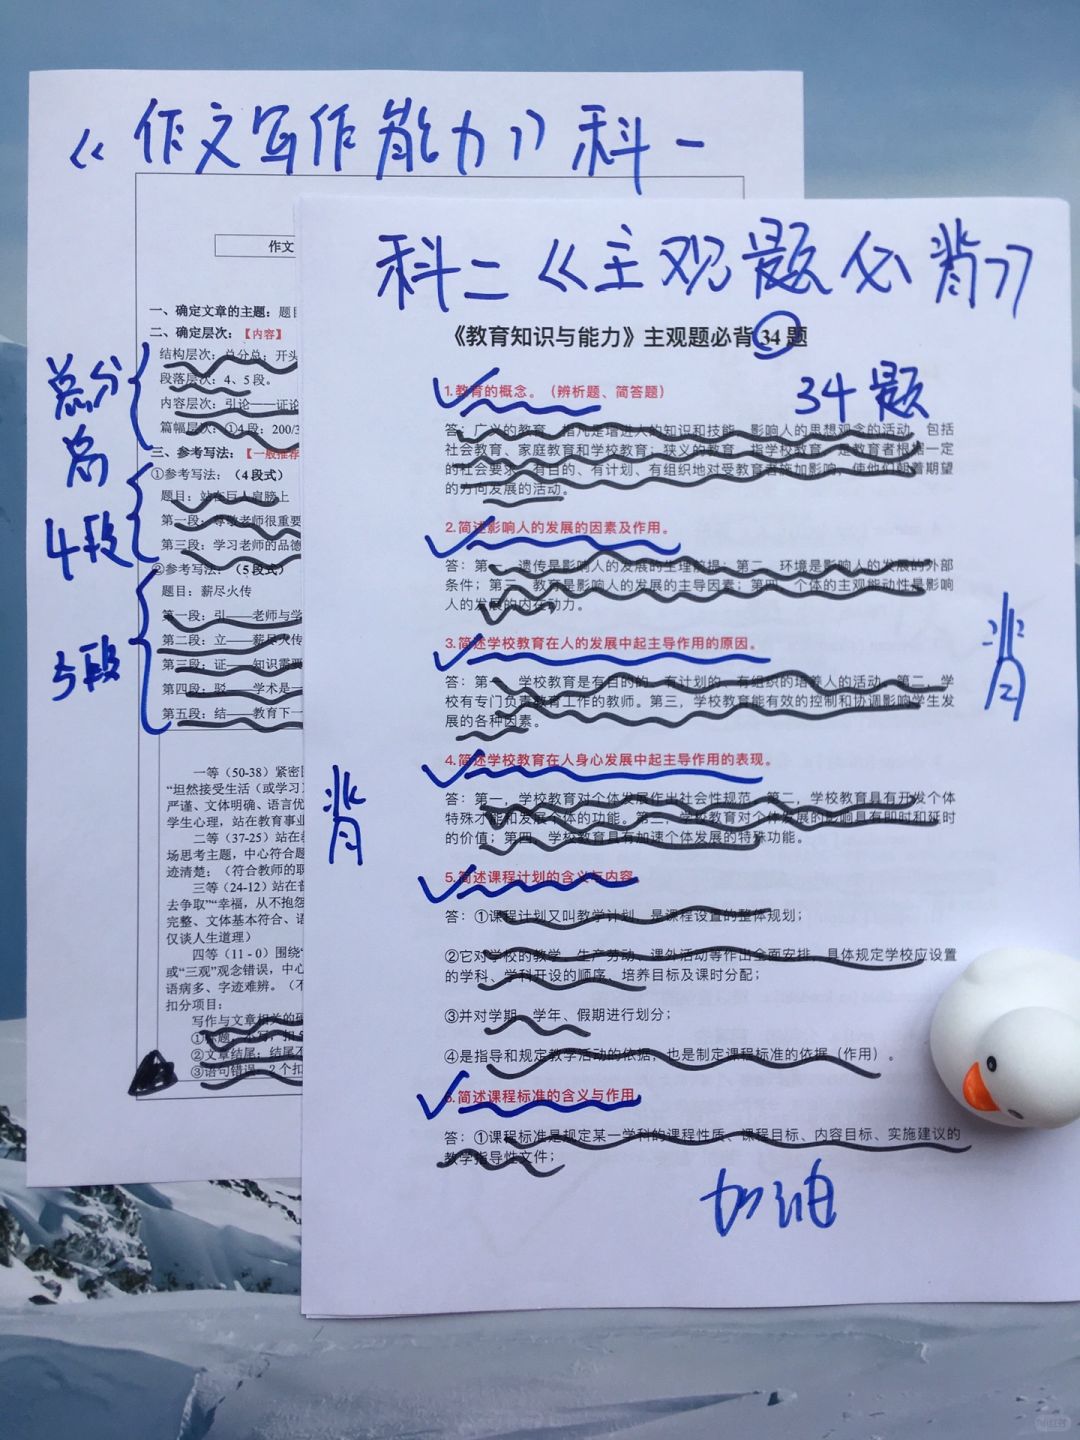 《作文写作能力》科一
作文
一、确定文章的主题：题目
二、确定层次：【内容】
结构层次：总分总：开头
段落层次：4、5段。
内容层次：引论——证论
篇幅层次：①4段：200/3
三、参考写法：【一般推荐
①参考写法：（4段式）
题目：站在巨人肩膀上
第一段：尊敬老师很重要
第三段：学习老师的品德
②参考写法：（5段式）
题目：薪尽火传
第一段：引——老师与学
第二段：立——薪尽火传
第三段：证——知识需要
第四段：驳——学术是一
第五段：结——教育下一
总分
总
4段
5段
一等（50-38）紧密
“坦然接受生活（或学习）
严谨、文体明确、语言优
学生心理，站在教育事业
二等（37-25）站在教
场思考主题，中心符合题
迹清楚；（符合教师的职
三等（24-12）站在普
去争取”“幸福，从不抱怨
完整、文体基本符合、语
仅谈人生道理）
四等（11-0）围绕“
或“三观”观念错误，中心
语病多、字迹难辨。（不
扣分项目：
写作与文章相关的硬
①标题：不写，扣
②文章结尾：结尾不
③语句错误：2个扣
科二《主观题必背》
《教育知识与能力》主观题必背34题
34题
1.教育的概念。（辨析题、简答题）
答：广义的教育，指凡是增进人的知识和技能、影响人的思想观念的活动，包括
社会教育、家庭教育和学校教育；狭义的教育，指学校教育，是教育者根据一定
的社会要求，有目的、有计划、有组织地对受教育者施加影响，使他们朝着期望
的方向发展的活动。
2.简述影响人的发展的因素及作用。
答：第一，遗传是影响人的发展的生理前提；第二，环境是影响人的发展的外部
条件；第三，教育是影响人的发展的主导因素；第四，个体的主观能动性是影响
人的发展的内在动力。
3.简述学校教育在人的发展中起主导作用的原因。
答：第一，学校教育是有目的的、有计划的、有组织的培养人的活动。第二，学
校有专门负责教育工作的教师。第三，学校教育能有效的控制和协调影响学生发
展的各种因素。
4.简述学校教育在人身心发展中起主导作用的表现。
答：第一，学校教育对个体发展作出社会性规范。第二，学校教育具有开发个体
特殊才能和发展个体的功能。第三，学校教育对个体发展的影响具有即时和延时
的价值；第四，学校教育具有加速个体发展的特殊功能。
5.简述课程计划的含义与内容
答：①课程计划又叫教学计划，是课程设置的整体规划；
②它对学校的教学、生产劳动、课外活动等作出全面安排，具体规定学校应设置
的学科、学科开设的顺序、培养目标及课时分配；
③并对学期、学年、假期进行划分；
④是指导和规定教学活动的依据，也是制定课程标准的依据（作用）。
6.简述课程标准的含义与作用
答：①课程标准是规定某一学科的课程性质、课程目标、内容目标、实施建议的
教学指导性文件；
背
背
加油